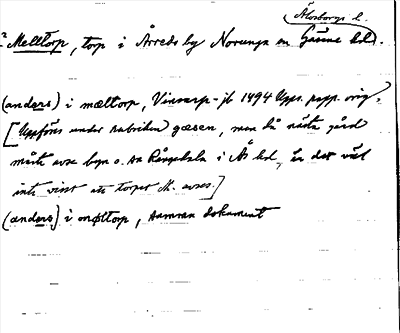 Älvsborgs l.
? Melltorp, torp i Årreds by Norunga sn Gäsene hd.
(anders) i mæltorp, Vinsarp-jb 1494 Upps. papp. orig.
[Uppföres under rubriken gæsen, men då nästa gård
måste avse byn o. sn Rångedala i Ås hd, är det väl
inte visst att torpet M. avses.]
(anders) i møltorp, samma dokument